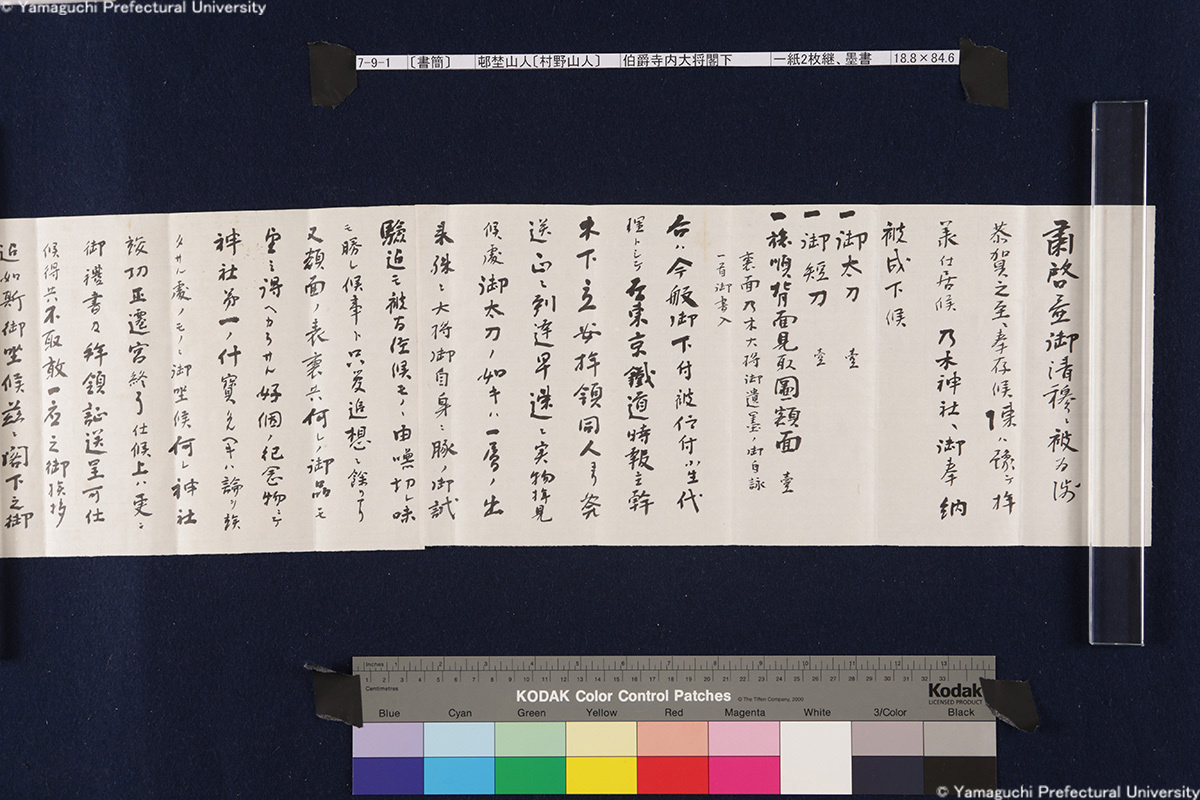 © Yamaguchi Prefectural University
7-9-1 〔書簡〕 邨埜山人〔村野山人〕 伯爵寺内大将閣下 一紙2枚継、墨書 18.8×84.6
粛啓益御清穆ニ被為渉
恭賀之至ニ奉存候陳ハ予テ拝
承仕居候乃木神社ヘ御奉納
被成下候
一御太刀 壹
一御短刀 壹
一旅順背面見取圖額面 壹
裏面乃木大将御遺墨ノ御自詠
一首御書入
右ハ今般御下付被仰付小生代
理トシテ在東京鐵道時報主幹
木下立安拝領同人ヨリ発
送正ニ到達早速ニ実物拝見
候處御太刀ノ如キハ一層ノ出
来殊ニ大将御自身ニ豚ノ御試
験迄モ被為在候モノヽ由嘸切レ味
モ勝レ候事ト只管追想ニ餘アリ
又額面ノ表裏共何レノ御品モ
宝ニ得ヘカラサル好個ノ紀念物ニテ
神社第一ノ什寶タルヘキハ論ヲ俟
タサル處ノモノニ御坐候何レ神社
竣功正遷宮終了仕候上ハ更ニ
御禮書及拝領証送呈可仕
候得共不取敢一応之御挨拶
迄如斯御坐候茲ニ閣下之御
Inches 1 2 3 4 5 6 7 8 9 10 11 12 13
Centimetres
KODAK Color Control Patches © The Tiffen Company, 2000
Kodak
LICENSED PRODUCT
Blue Cyan Green Yellow Red Magenta White 3/Color Black
© Yamaguchi Prefectural University